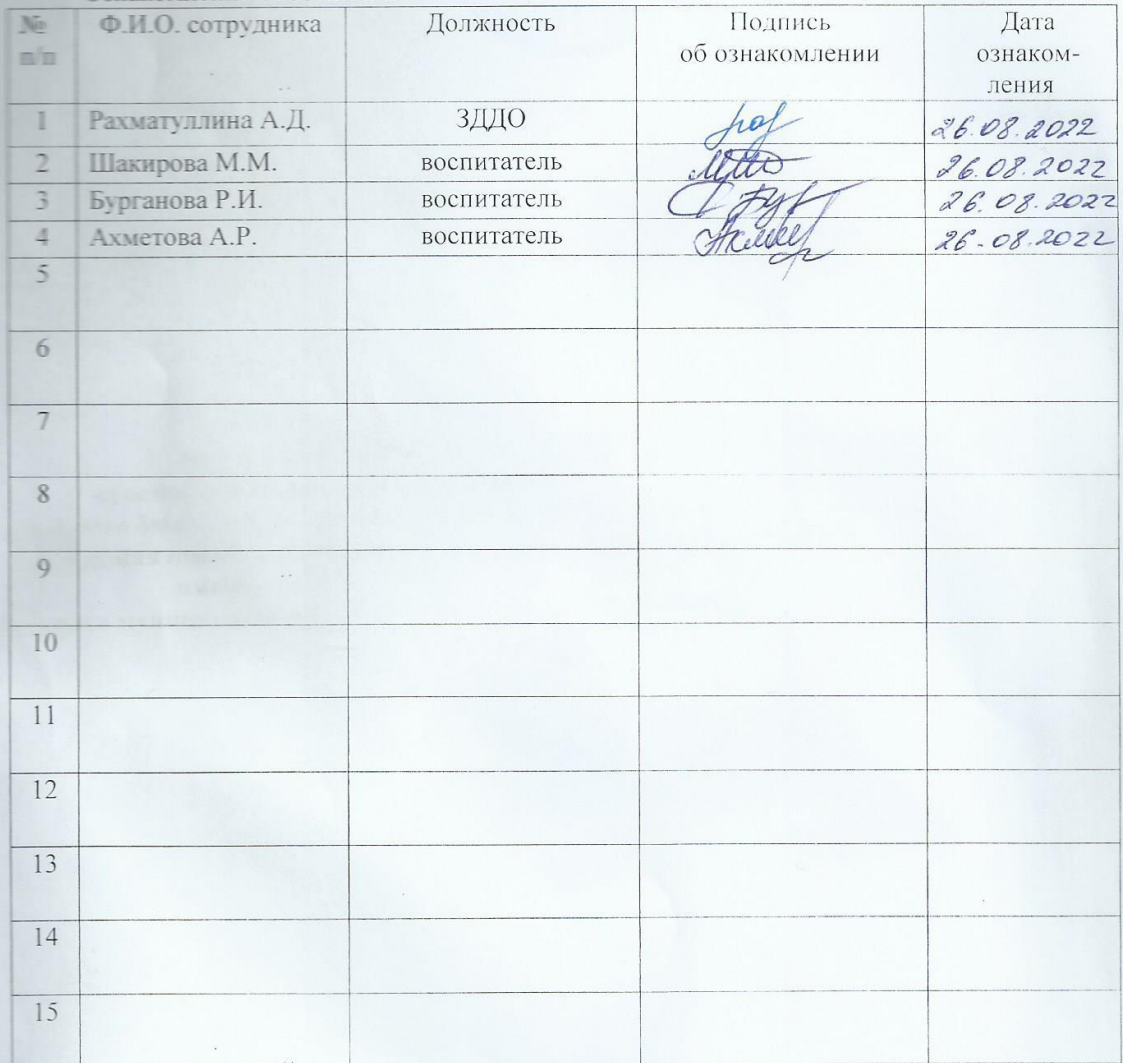 № Ф.И.О. сотрудника Должность Подпись Дата
п/п об ознакомлении ознаком-
ления
1 Рахматуллина А.Д. ЗДДО 26.08.2022
2 Шакирова М.М. воспитатель 26.08.2022
3 Бурганова Р.И. воспитатель 26.08.2022
4 Ахметова А.Р. воспитатель 26.08.2022
5
6
7
8
9
10
11
12
13
14
15